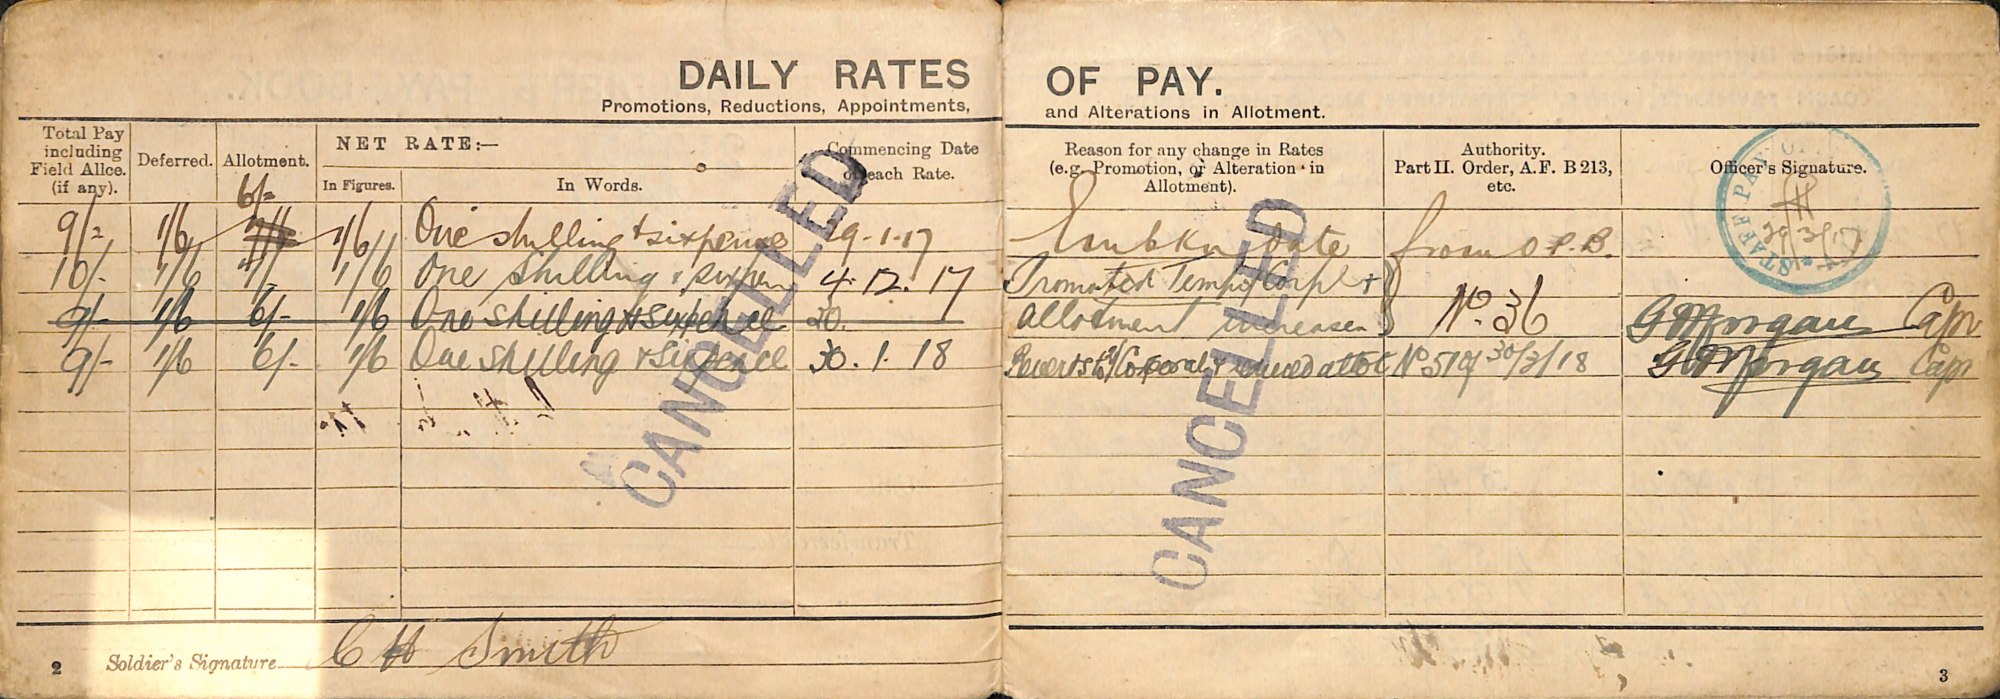 DAILY RATES OF PAY.
Promotions, Reductions, Appointments, and Alterations in Allotment.
Total Pay including Field Allce. (if any).
Deferred.
Allotment.
NET RATE:—
In Figures.
In Words.
Commencing Date of each Rate.
Reason for any change in Rates (e.g. Promotion, or Alteration in Allotment).
Authority. Part II. Order, A.F. B 213, etc.
Officer's Signature.
6/-
9/- 1/6 1/6 One shilling & sixpence 29-1-17 date from O.P.B.
10/- 1/6 7/- 1/6 One Shilling & sixpen 4.12.17 Promoted Temp Corpl +
9/- 1/6 6/- 1/6 One shilling & sixpence 30. allotment increased No. 36 G Morgan Capt
9/- 1/6 6/- 1/6 One shilling & sixpence 30.1.18 Reverts to Corporal & reduced allot No 51 30/3/18 G Morgan Capt
CANCELLED
CANCELLED
STAFF PAY
29/3/17
2 Soldier's Signature C H Smith
3